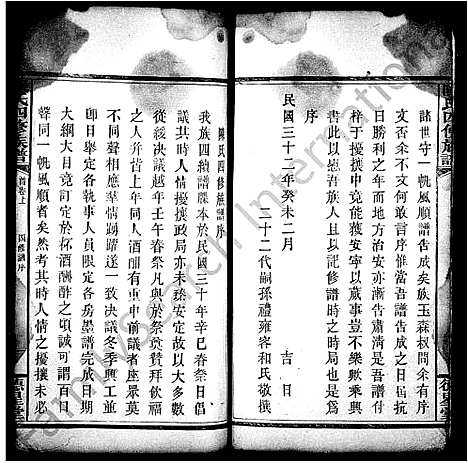 諸世守一帆風順譜告成矣族玉森权問余有序
文否余不文何敢言序惟當吾譜告成之日届抗
日勝利之年而地方治安亦漸告肅清是吾譜付
梓于擾攘中竟能獲安寧以蕆事豈不樂歟乘興
書此以慰吾族人且以記修譜時之時局也是爲
序
民國三十二年癸未二月 吉日
三十二代嗣孫禮雍容和氏敬撰
陳氏四修族譜序
我族四續譜牒本於民國三十年辛巳春祭日倡
議其時人情擾攘政局亦未臻安定故以大多數
從緩决議越年壬午春祭凡與於祭奠贊拜飲福
之人弁皆上年同人酒酣有重申前議者座衆莫
不同聲相應羣情踴躍遂一致决議冬季興工並
卽日舉定各執事人員限定各房墨譜完成日期
大綱大目竟訂定於杯酒酬酢之頃誠可謂百日
聲同一帆風順者矣然考其時人情之擾攘未必
氏四修族譜
首卷上
四修譜序